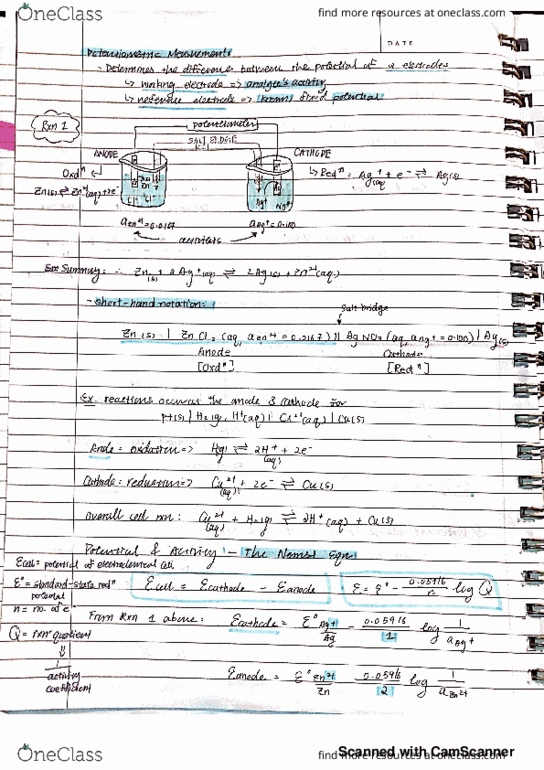 OneClass
find more resources at oneclass.com
DATE
Potentiometric Measurements
- Determines the difference between the potential of 2 electrodes
↳ working electrode => analyte's activity
↳ reference electrode => known fixed potential
Rxn 1
potentiometer
SALT BRIDGE
ANODE
CATHODE
Oxdⁿ
↳ Redⁿ: Ag⁺(aq) + e⁻ ⇌ Ag(s)
Zn(s) ⇌ Zn²⁺(aq) + 2e⁻
a Zn²⁺ = 0.0167
a Ag⁺ = 0.100
activities
Summary: ∴ Zn(s) + 2Ag⁺(aq) ⇌ 2Ag(s) + Zn²⁺(aq)
- Short-hand notation:
Salt bridge
Zn(s) | ZnCl₂ (aq, aZn²⁺ = 0.0167) || AgNO₃ (aq, aAg⁺ = 0.100) | Ag(s)
Anode
Cathode
[Oxdⁿ]
[Redⁿ]
Ex. reactions occur at the anode & cathode for
Pt(s) | H₂(g), H⁺(aq) || Cu²⁺(aq) | Cu(s)
Anode = oxidation => H₂(g) ⇌ 2H⁺(aq) + 2e⁻
Cathode = reduction => Cu²⁺(aq) + 2e⁻ ⇌ Cu(s)
Overall cell rxn: Cu²⁺(aq) + H₂(g) ⇌ 2H⁺(aq) + Cu(s)
Potential & Activity - The Nernst Eqn
Ecell = potential of electrochemical cell
E° = standard-state redⁿ potential
Ecell = Ecathode - Eanode
E = E° - 0.05916/n log Q
n = no. of e⁻
From Rxn 1 above: Ecathode = E° Ag⁺/Ag - 0.05916/1 log 1/aAg⁺
Q = rxn quotient
1
activity coefficient
Eanode = E° Zn²⁺/Zn - 0.05916/2 log 1/aZn²⁺
OneClass
find more resources at oneclass.com
Scanned with CamScanner